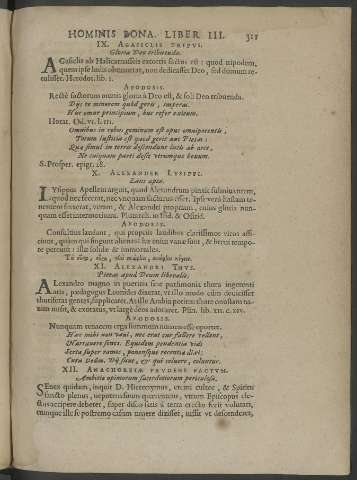 HOMINIS BONA. LIBER III. 321
IX. AGASICLIS TRIPVS.
Gloria Deo tribuenda.
AGasiclis ab Halicarnasseis extorris factus est: quod tripodem,
quem ipse ludis obtinuerat, non dedicasset Deo, sed domum re-
tulisset. Herodot. lib. 1.
APODOSIS.
Rectè factorum omnis gloria à Deo est, & soli Deo tribuenda.
Dijs te minorem quòd geris, imperas.
Huc omne principium, huc refer exitum.
Horat. Od. VI. l. III.
Omnibus in rebus geminum est opus omnipotentis,
Totum iustitia est quod gerit aut Pietas:
Quæ simul in terris descendunt lucis ab arce,
Ne cuiquam parti desit utrumque bonum.
S. Prosper. epigr. 18.
X. ALEXANDER LYSIPPI.
Laus apta.
LYsippus Apellem arguit, quod Alexandrum pinxit fulmine
quod nec fecerat, nec unquam facturus esset. Ipse verò hastam te-
nentem finxerat, virtuti, & Alexandri propriam, cuius gloria nun-
quam esset intermoritura. Plutarch. in Isid. & Osirid.
APODOSIS.
Consultius laudant, qui proprijs laudibus clarissimos viros affi-
ciunt, quàm qui fingunt alienas: hæ enim vanæ sunt, & brevi tempo-
re pereunt: illæ solidæ & immortales.
XI. ALEXANDRI THVS.
Pietas apud Deum liberalis.
ALexandro magno in pueritia sine parsimonia thura ingerenti
aris, pædagogus Leonides dixerat, ut illo modo cùm devicisset
thuriferas gentes, supplicaret. At ille Arabia potitus thure onustam na-
vim misit, & exoratus, ut largè deos adoraret. Plin. lib. XII. c. XIV.
APODOSIS.
Nunquam tenacem erga summum numen esse oportet.
Hæc mihi non vani, nec erat cur fallere vellent,
Narravere senes. Equidem pendentia vidi
Serta super ramos, ponensque recentia dixi:
Cura Deûm Dij sunt, & qui coluere, coluntur.
XII. ANACHORETÆ PRVDENS FACTVM.
Ambitio opimorum sacerdotiorum periculosa.
SEnex quidam, inquit D. Hieronymus, eremi cultor, & Spiritu
sancto plenus, nepotem suum quemdam, virum Episcopus ele-
ctus accipere deberet, super disco satis à terra erecto fecit volutari,
eumque ille se postremo casum timere dixisset, iussit ut descenderet,